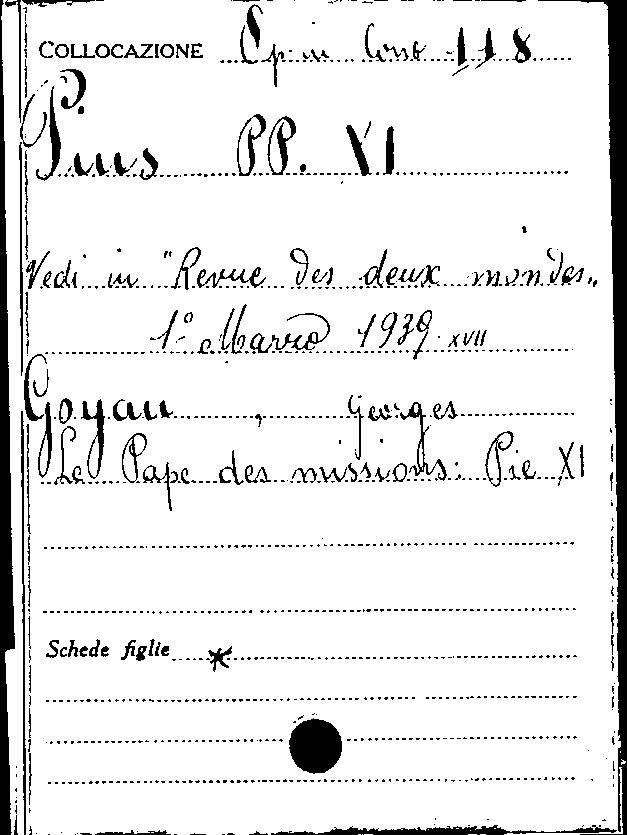 COLLOCAZIONE Op. in Cons 118
Pius PP. XI
Vedi in "Revue des deux mondes„
1º Marzo 1939 XVII
Goyau, Georges
Le Pape des missions: Pie XI
Schede figlie *